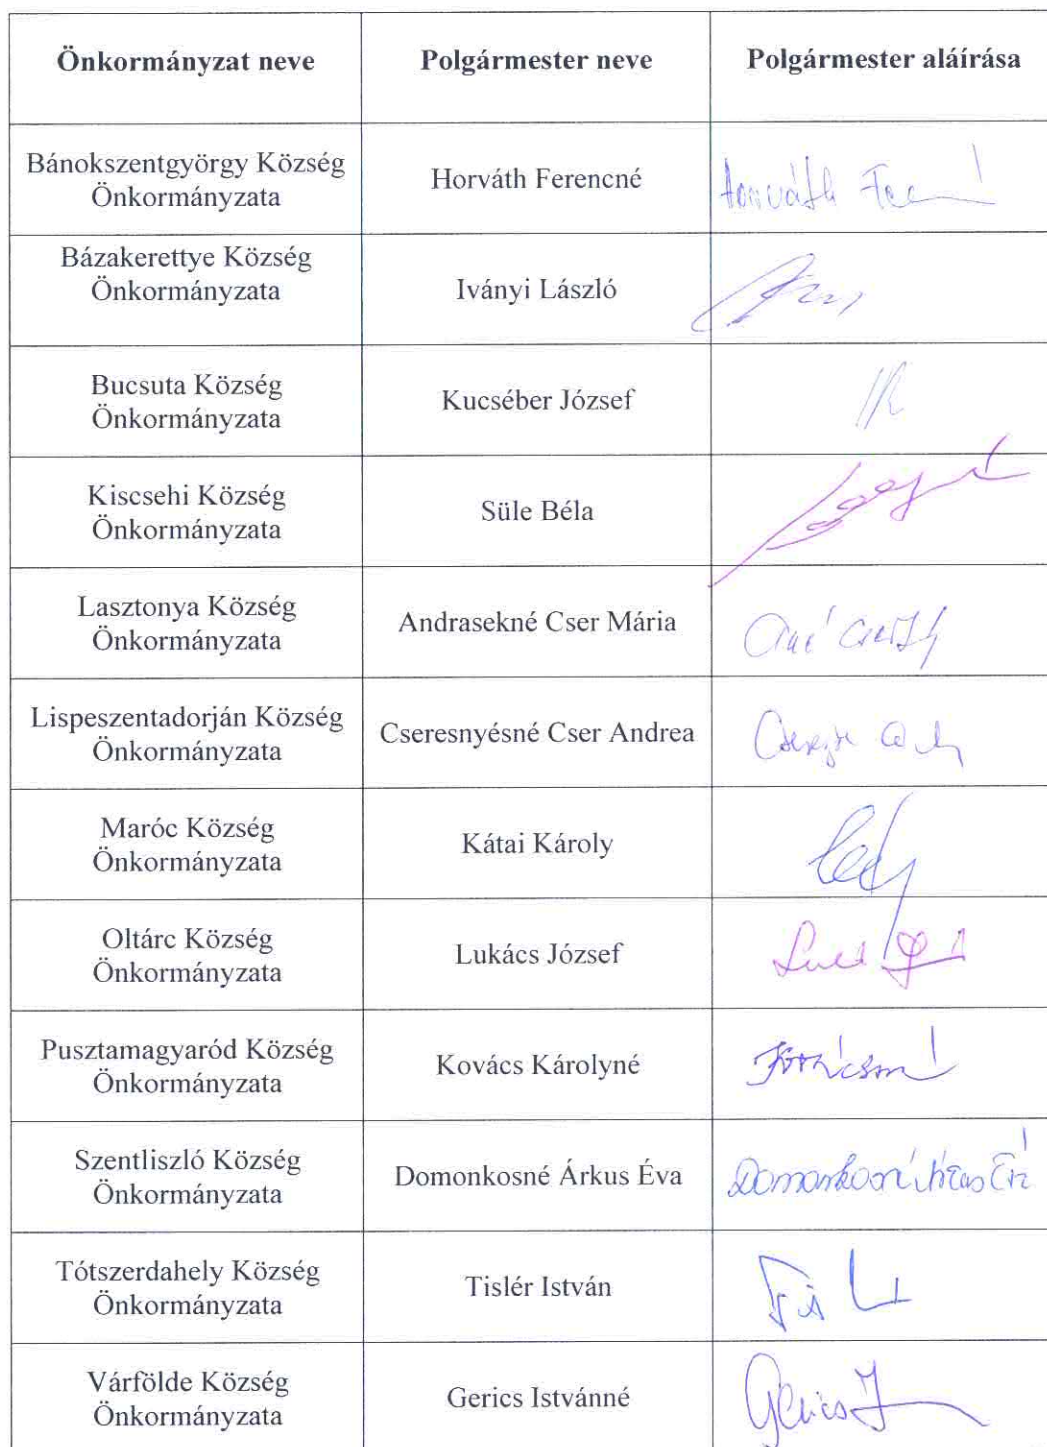 Önkormányzat neve Polgármester neve Polgármester aláírása
Bánokszentgyörgy Község
Önkormányzata
Horváth Ferencné
Horváth
Bázakerettye Község
Önkormányzata
Iványi László
Bucsuta Község
Önkormányzata
Kucséber József
Kiscsehi Község
Önkormányzata
Süle Béla
Lasztonya Község
Önkormányzata
Andrasekné Cser Mária
Lispeszentadorján Község
Önkormányzata
Cseresnyésné Cser Andrea
Maróc Község
Önkormányzata
Kátai Károly
Oltárc Község
Önkormányzata
Lukács József
Pusztamagyaród Község
Önkormányzata
Kovács Károlyné
Szentliszló Község
Önkormányzata
Domonkosné Árkus Éva
Tótszerdahely Község
Önkormányzata
Tislér István
Várfölde Község
Önkormányzata
Gerics Istvánné
Gerics